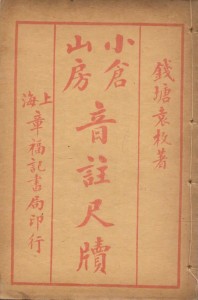 錢塘袁枚著
小倉山房
音註尺牘
上海章福記書局印行